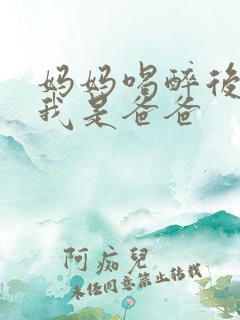 妈妈喝醉後
我是爸爸
阿痴兒
未经同意禁止转载